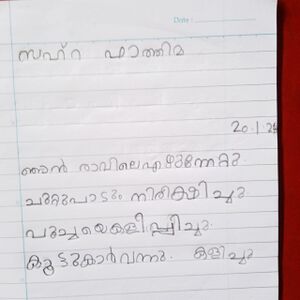 Date :
സഹ്റ ഫാത്തിമ
20.1.24
ഞാൻ രാവിലെഎഴുന്നേറ്റു.
ചുറ്റുപാടും നിരീക്ഷിച്ചു
പൂച്ചയെകളിപ്പിച്ചു.
കൂട്ടുകാർവന്നു. കളിച്ചു